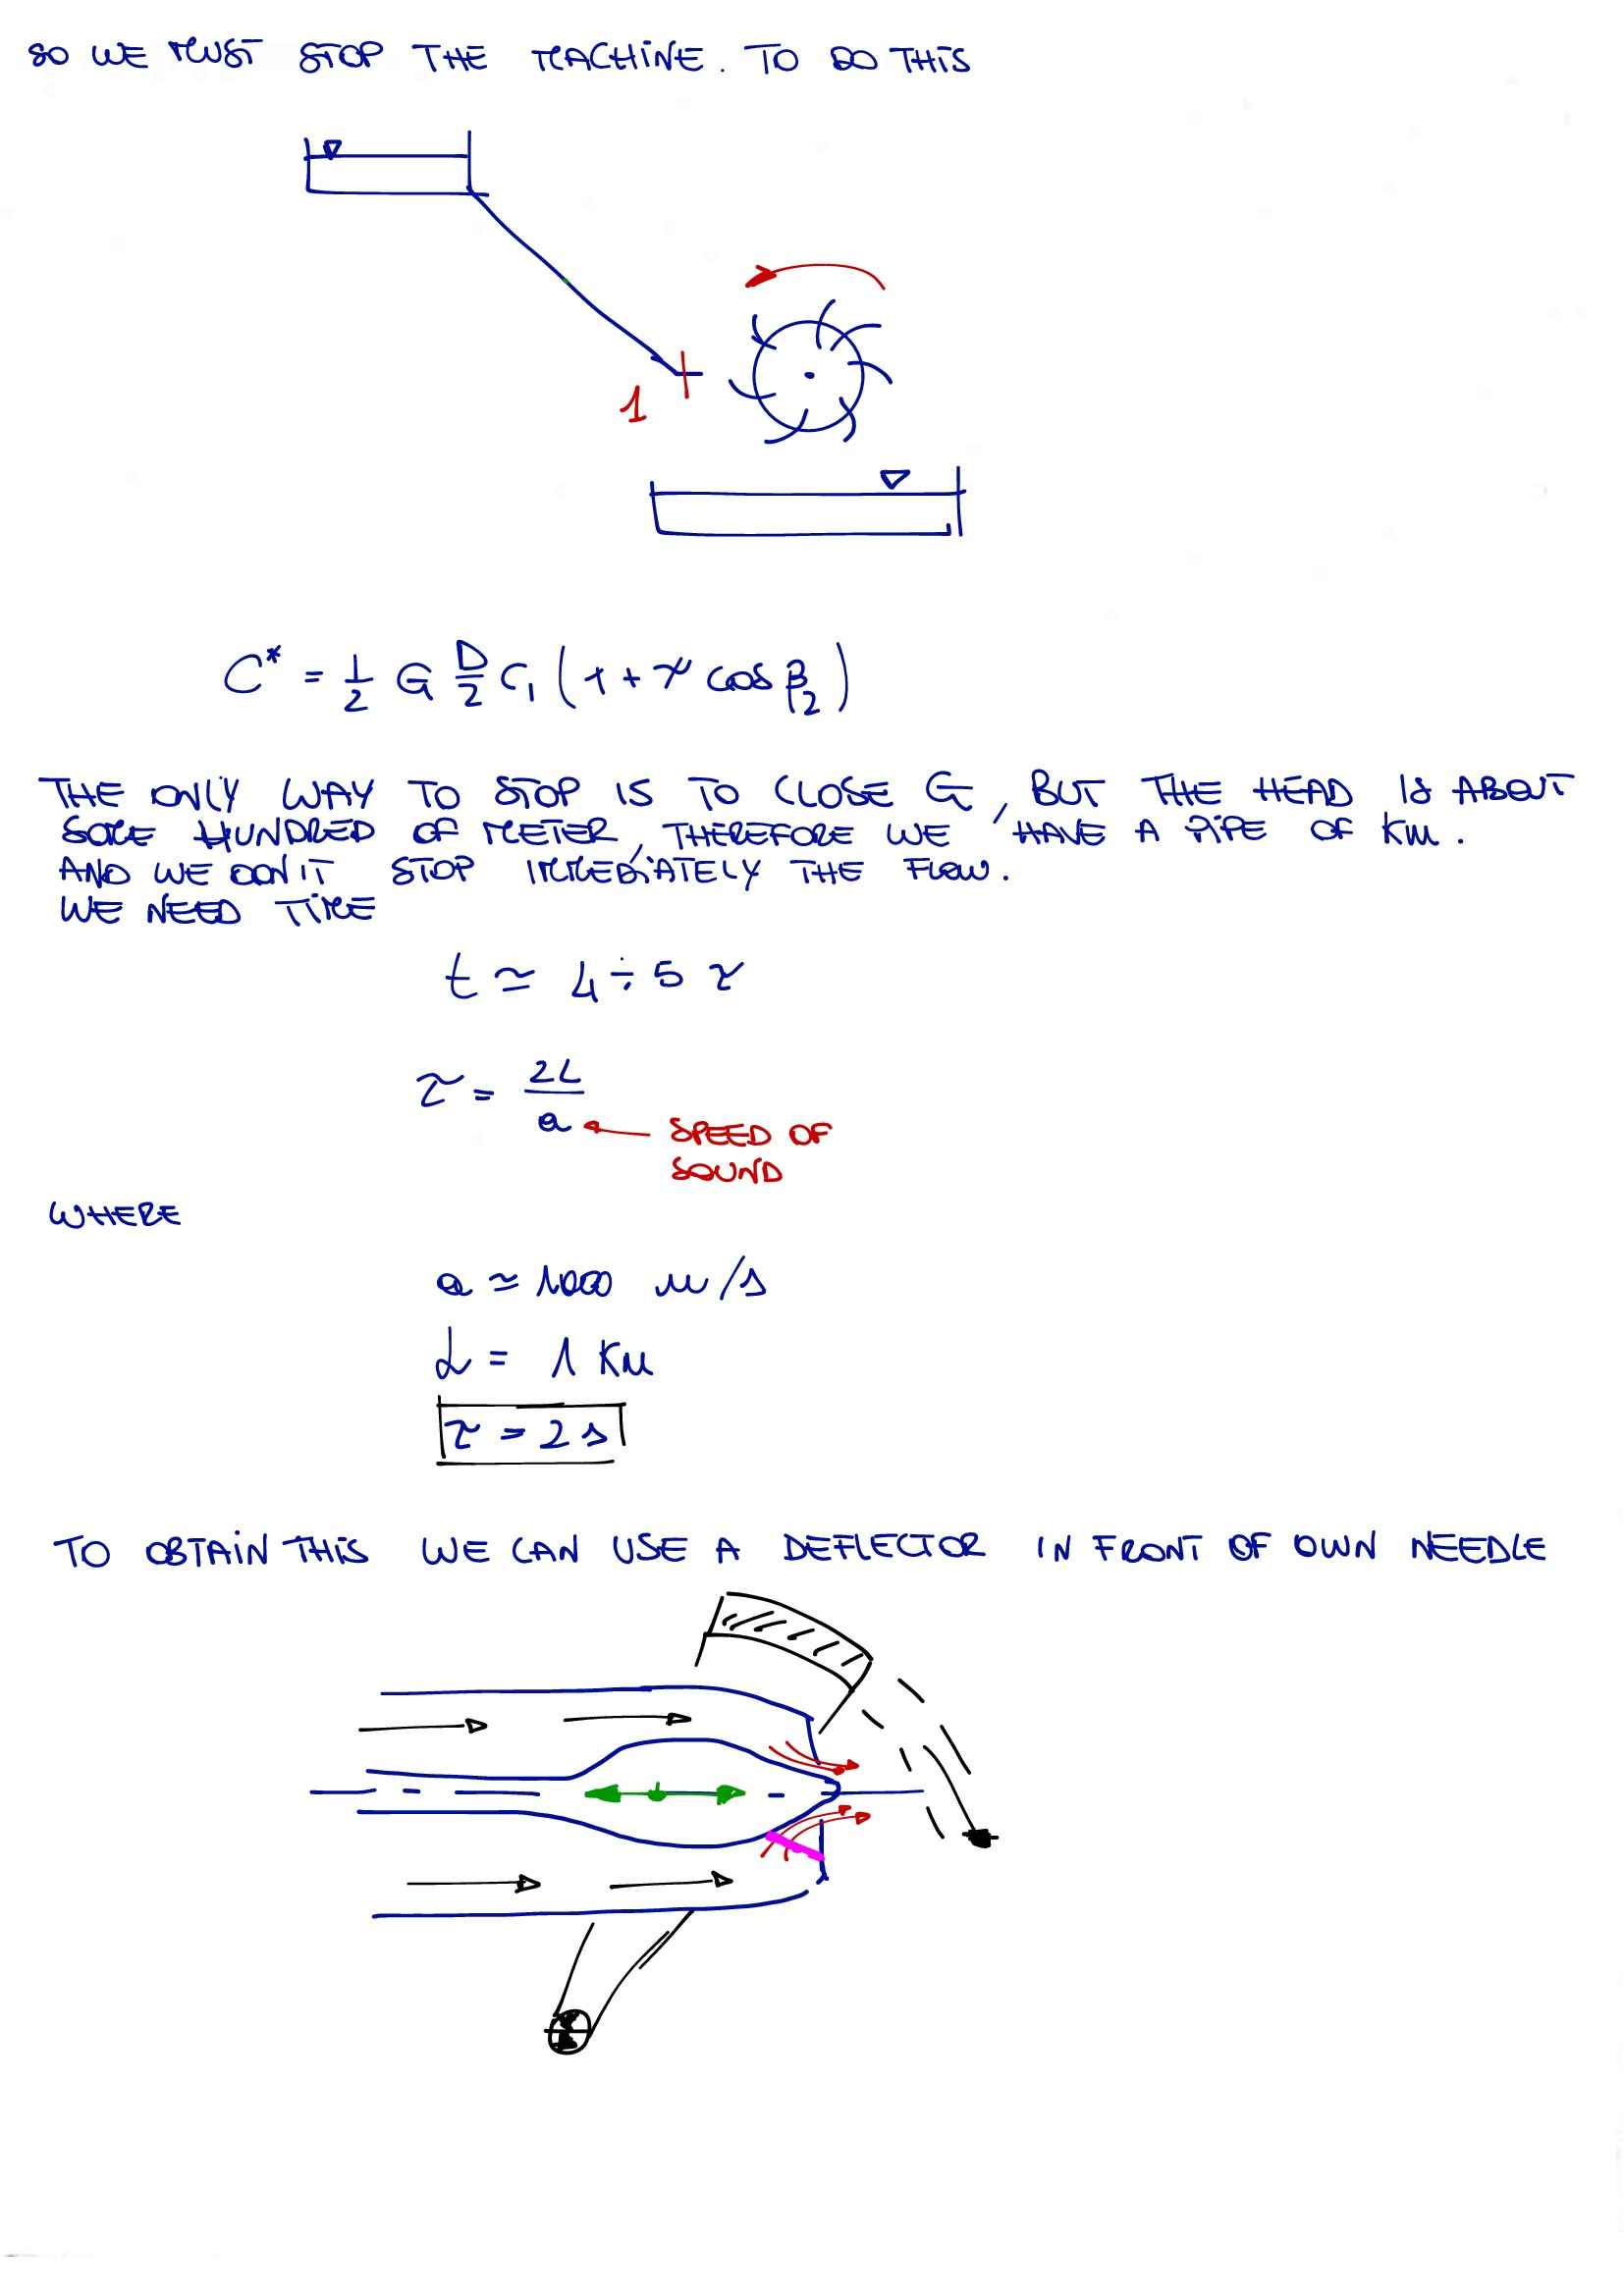 SO WE MUST STOP THE MACHINE. TO DO THIS
1
C* = 1/2 G D/2 C₁ (1 + ψ cos β₂)
THE ONLY WAY TO STOP IS TO CLOSE G, BUT THE HEAD IS ABOUT
SOME HUNDRED OF METER, THEREFORE WE HAVE A PIPE OF KM.
AND WE DON'T STOP IMMEDIATELY THE FLOW.
WE NEED TIME
t ≃ 4 ÷ 5 τ
τ = 2L/a ← SPEED OF
SOUND
WHERE
a ≃ 1000 m/s
L = 1 Km
τ = 2 s
TO OBTAIN THIS WE CAN USE A DEFLECTOR IN FRONT OF OWN NEEDLE